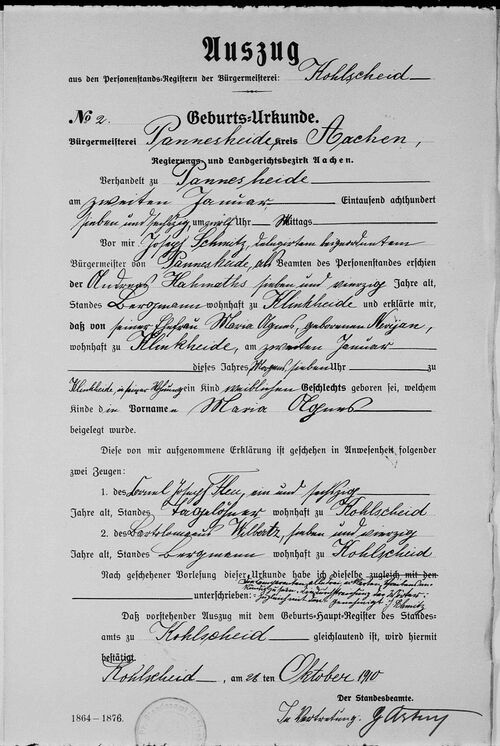 Auszug
aus den Personenstands-Registern der Bürgermeisterei: Kohlscheid
No 2. Geburts-Urkunde.
Bürgermeisterei Pannesheide, Kreis Aachen,
Regierungs- und Landgerichtsbezirk Aachen.
Verhandelt zu Pannesheide
am zweiten Januar Eintausend achthundert
sieben und sechzig, Uhr Mittags
Vor mir Joseph Schmitz, delegirtem beigeordnetem
Bürgermeister von Pannesheide, als Beamten des Personenstandes erschien
der Andreas sieben und vierzig Jahre alt,
Standes Bergmann wohnhaft zu Klinkheide und erklärte mir,
daß von seiner Ehefrau Maria Agnes, geborenen
wohnhaft zu Klinkheide, am zweiten Januar
dieses Jahres Morgens sieben Uhr zu
Klinkheide, in seiner Wohnung ein Kind weiblichen Geschlechts geboren sei, welchem
Kinde die Vornamen Maria Agnes
beigelegt wurde.
Diese von mir aufgenommene Erklärung ist geschehen in Anwesenheit folgender
zwei Zeugen:
1. des Joseph ein und sechzig
Jahre alt, Standes Tagelöhner wohnhaft zu Kohlscheid
2. des Bartolomaeus Wilbertz, sieben und vierzig
Jahre alt, Standes Bergmann wohnhaft zu Kohlscheid
Nach geschehener Vorlesung dieser Urkunde habe ich dieselbe zugleich mit den
unterschrieben:
Daß vorstehender Auszug mit dem Geburts-Haupt-Register des Standes-
amts zu Kohlscheid gleichlautend ist, wird hiermit
bestätigt.
Kohlscheid, am 26 ten Oktober 1910
Der Standesbeamte.
1864–1876. In Vertretung.